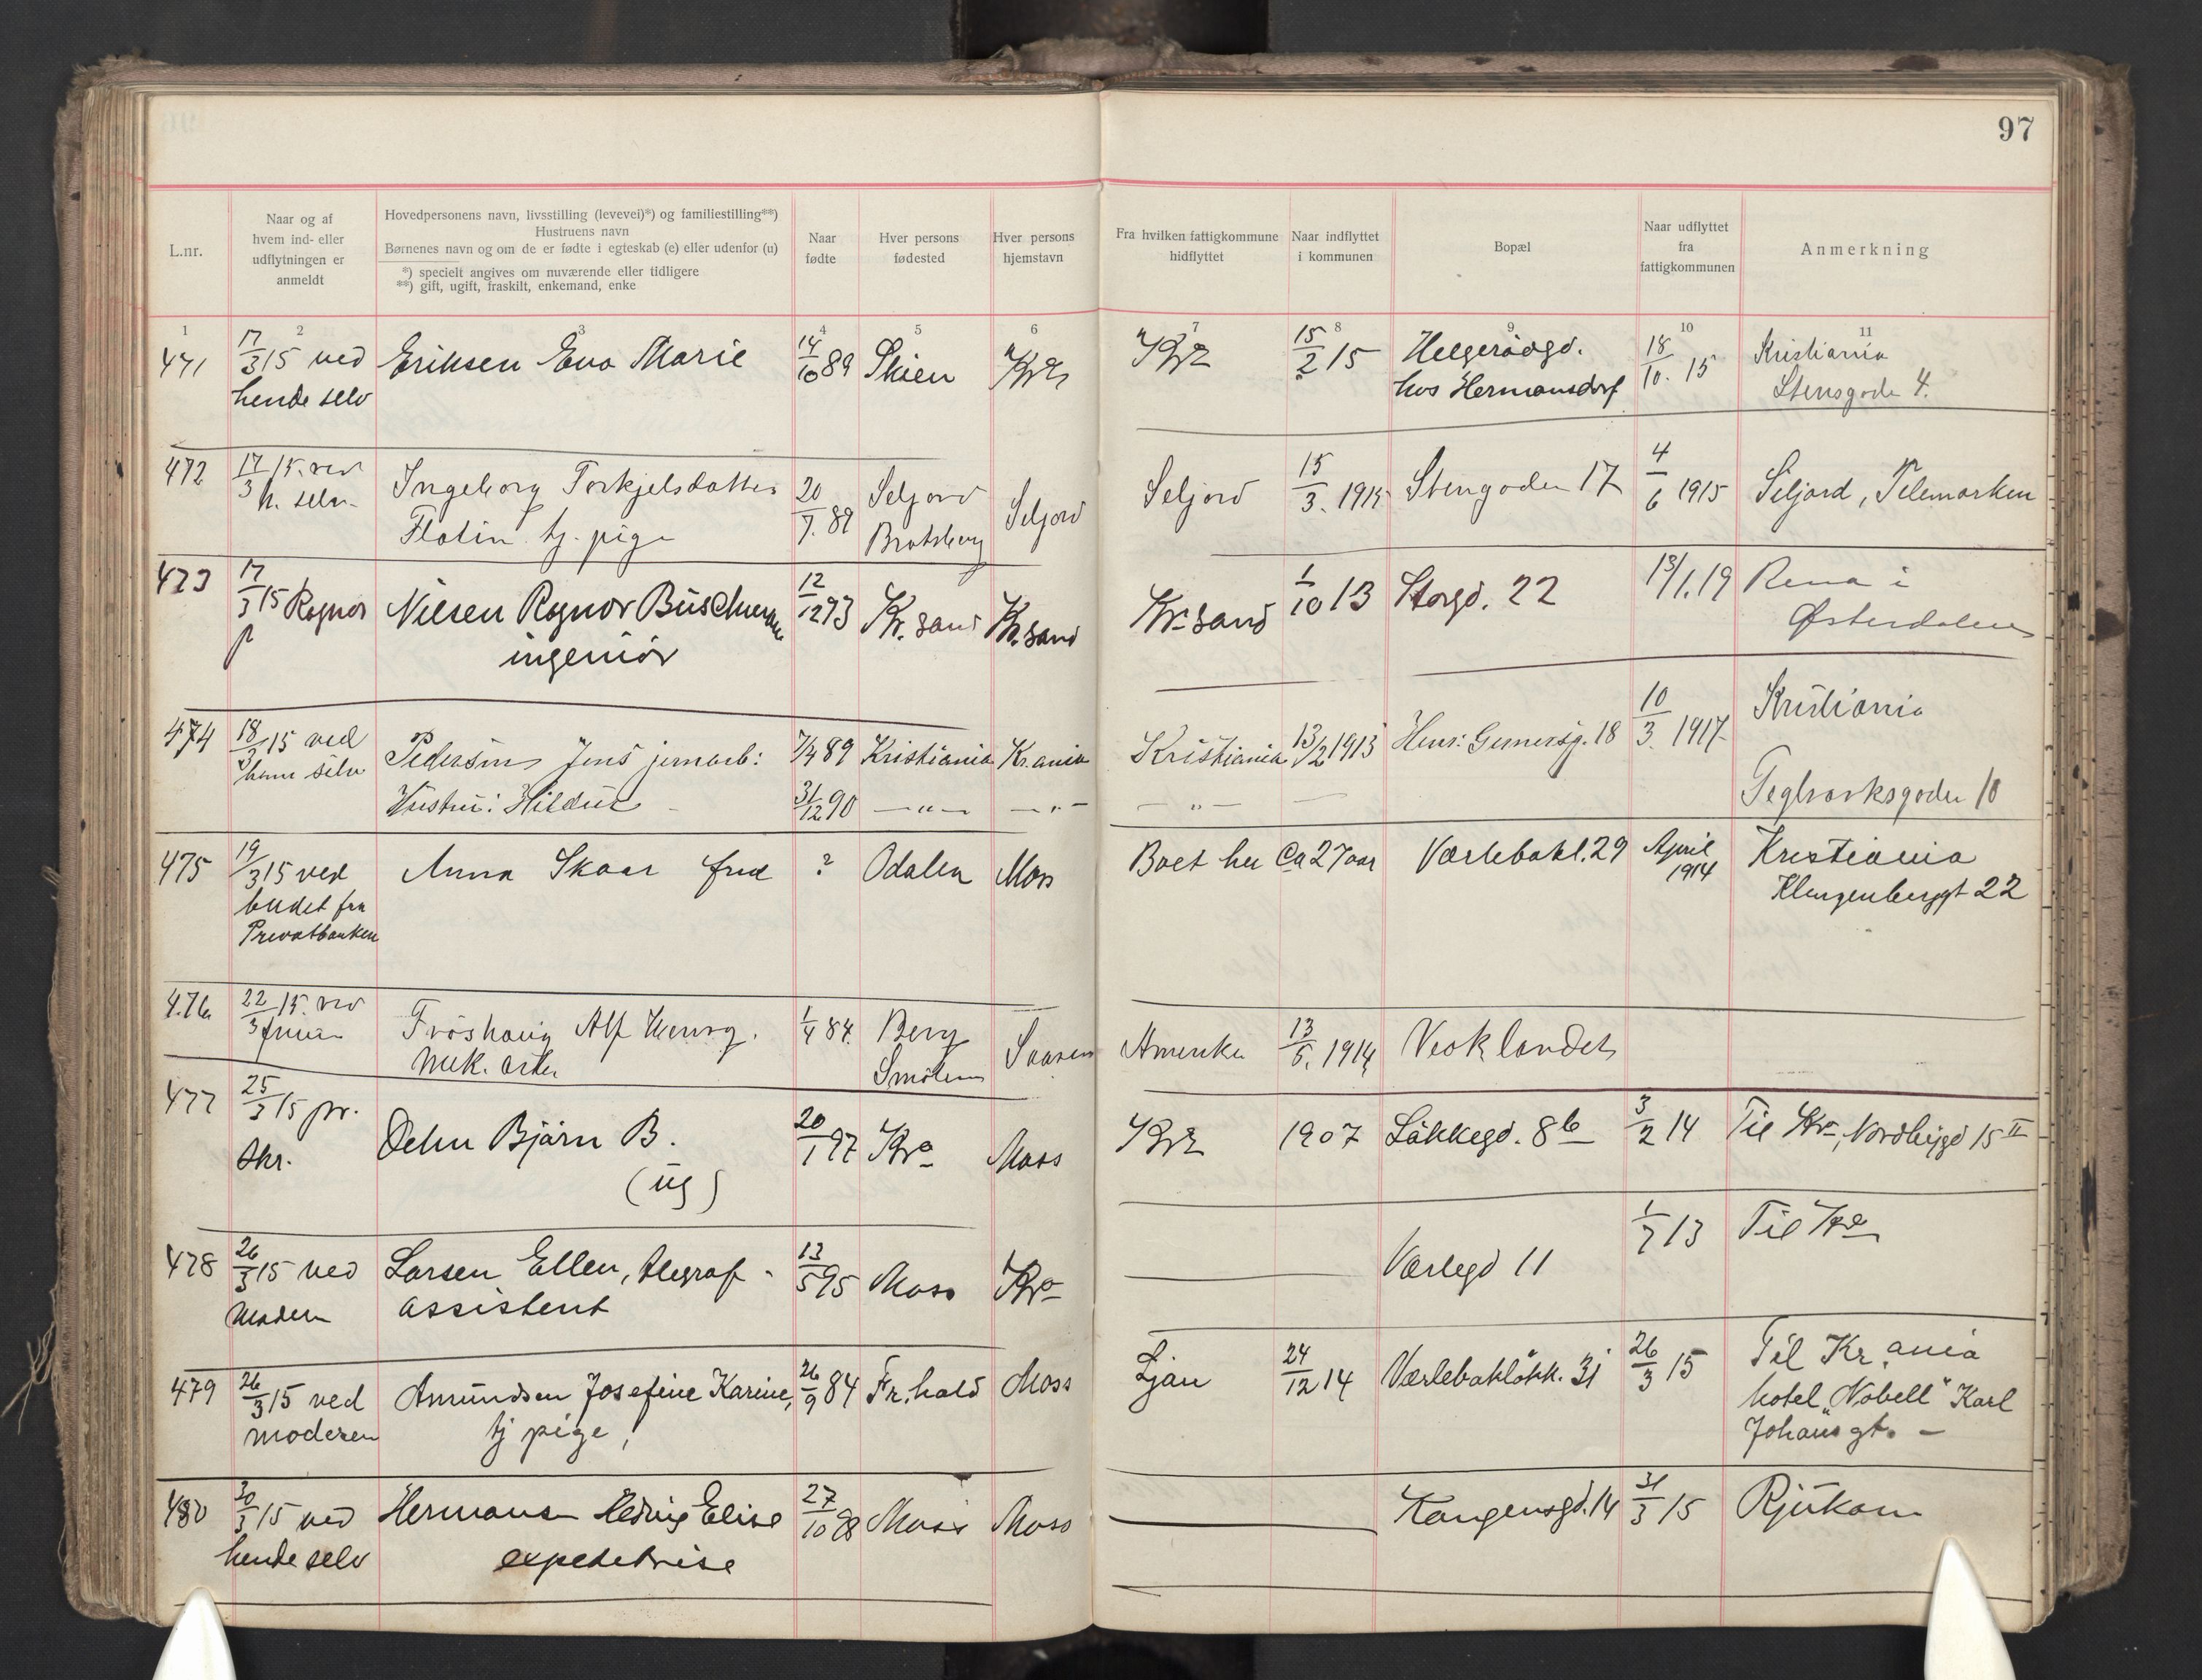 97
L.nr.
Naar og af
hvem ind- eller
udflytningen er
anmeldt
Hovedpersonens navn, livsstilling (levevei)*) og familiestilling**)
Hustruens navn
Børnenes navn og om de er fødte i egteskab (e) eller udenfor (u)
*) specielt angives om nuværende eller tidligere
**) gift, ugift, fraskilt, enkemand, enke
Naar
fødte
Hver persons
fødested
Hver persons
hjemstavn
Fra hvilken fattigkommune
hidflyttet
Naar indflyttet
i kommunen
Bopæl
Naar udflyttet
fra
fattigkommunen
Anmerkning
1 2 3 4 5 6 7 8 9 10 11
471 17/3 15 ved Eriksen Eva Marie 14/10 89 Skien Kra Kra 15/2 15 Helgerødgd. 18/10. 15 Kristiania
hende selv hos Hermansdorf Stensgade 4.
472 17/3 15. ved Ingeborg Torkjelsdatter 20/7. 89 Seljord Seljord Seljord 15/3. 1915 Stengaden 17 4/6 1915 Seljord, Telemarken
h. selv. Flatin tj. pige Bratsberg
473 17/3 15 Ragnar Nilsen Ragnar Buschmann 12/12 93 Kr. sand Kr. sand Kr. sand 1/10 13 Storgd. 22 13/1.19 Rena i
ingeniør Østerdalen
474 18/3 15 ved Pedersen Jens jernarb: 7/4 89 Kristiania Kr.ania Kristiania 13/2 1913 Henr: Gernersg. 18 10/3. 1917 Kristiania
ham selv Hustru: Hildur 31/12 90 — " — — " — — " — — Teglverksgaden 10
475 19/3 15 ved Anna Skaar frue ? Odalen Moss Boet her Ca 27 aar Værlebakk.29 April 1914 Kristiania
budet fra Klingenberggt 22
Privatbanken
476 22/3 15. ved Frøshaug Alf Henry. 1/4 84. Berg Amerika 13/5. 1914 Vesklandet
fruen mek. arb. Smålen
477 25/3 15 pr. Dehn Bjørn B. 20/1 97 Kra Moss Kra 1907 Løkkegd. 8 b 3/2 14 Til Kra, Nordbygd 15 II
skr. (ug)
478 26/3 15 ved Larsen Ellen, telegraf- 13/5 95 Moss Kra Værlegd 11 1/7 13 Til Kra
moderen assistent
479 26/3 15 ved Amundsen Josefine Karine, 26/9 84 Fr.hald Moss Ljan 24/12 14 Værlebakløkk. 31 26/3 15 Til Kr.ania
moderen tj pige, hotel „Nobell" Karl
Johans gt. —
480 30/3 15 ved Hermansen Hedvig Elise 27/10 98 Moss Moss Kongensgd. 14 31/3 15 Rjukan
hende selv expeditrise